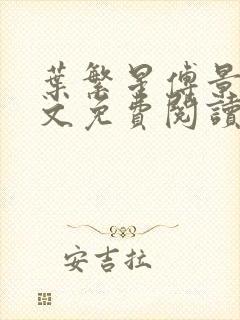 葉繁星傅景
文免費閱讀
安吉拉